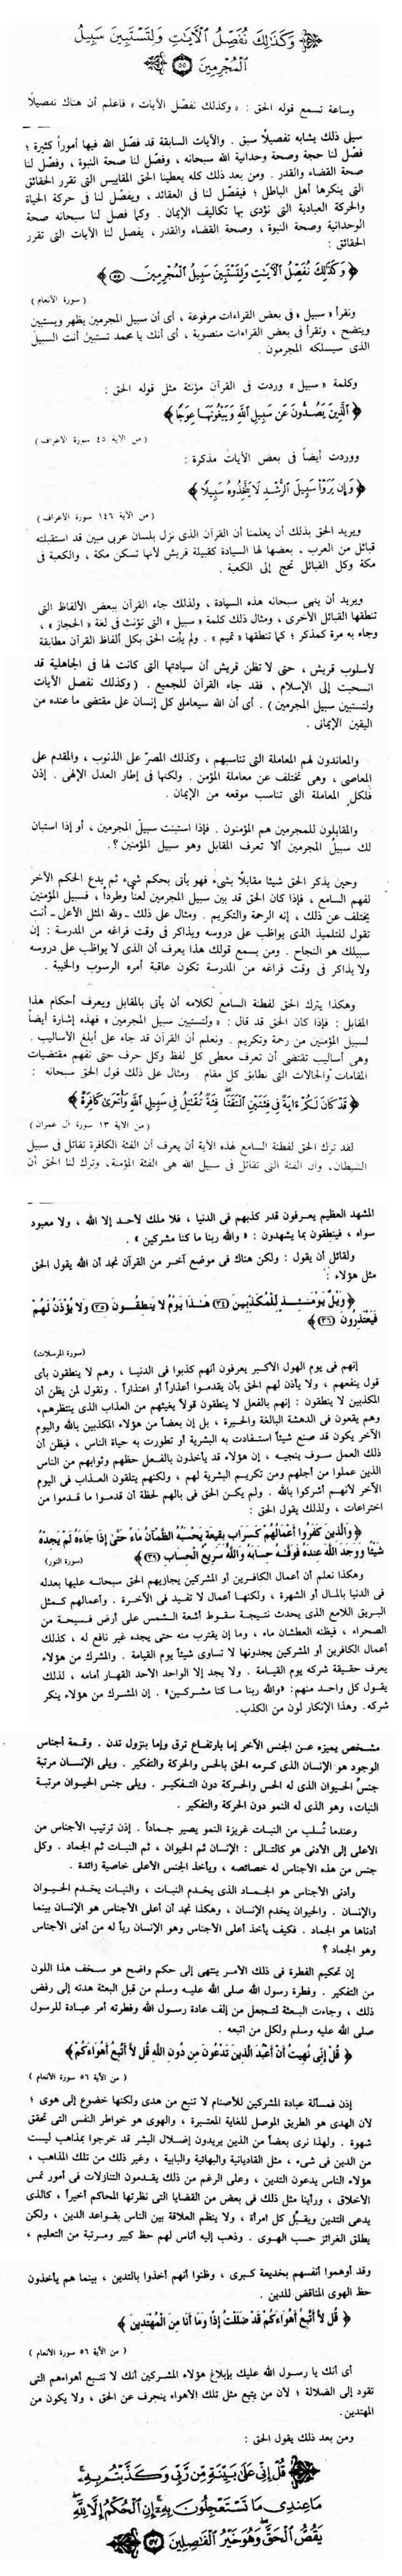 وَكَذَٰلِكَ نُفَصِّلُ الْآيَاتِ وَلِتَسْتَبِينَ سَبِيلُ
الْمُجْرِمِينَ ٥٥
وساعة تسمع قوله الحق : « وكذلك نفصّل الآيات » فاعلم أن هناك تفصيلاً
سيلى ذلك يشابه تفصيلاً سبق . والآيات السابقة قد فصل الله فيها أموراً كثيرة ؛
فصل لنا حجة وصحة وحدانية الله سبحانه ، وفصل لنا صحة النبوة ، وفصل لنا
صحة القضاء والقدر . ومن بعد ذلك كله يعطينا الحق المقاييس التى تقرر الحقائق
التى ينكرها أهل الباطل ؛ فيفصل لنا فى العقائد ، ويفصل لنا فى حركة الحياة
والحركة العبادية التى نؤدى بها تكاليف الإيمان . وكما فصل لنا سبحانه صحة
الوحدانية وصحة النبوة ، وصحة القضاء والقدر ، يفصل لنا الآيات التى تقرر
الحقائق :
﴿ وَكَذَٰلِكَ نُفَصِّلُ الْآيَاتِ وَلِتَسْتَبِينَ سَبِيلُ الْمُجْرِمِينَ ٥٥ ﴾
( سورة الأنعام )
ونقرأ « سبيل » فى بعض القراءات مرفوعة ، أى أن سبيل المجرمين يظهر ويستبين
ويتضح ، ونقرأ فى بعض القراءات منصوبة ، أى أنك يا محمد تستبين أنت السبيل
الذى سيسلكه المجرمون .
وكلمة « سبيل » وردت فى القرآن مؤنثة مثل قوله الحق :
﴿ الَّذِينَ يَصُدُّونَ عَن سَبِيلِ اللَّهِ وَيَبْغُونَهَا عِوَجًا ﴾
( من الآية ٤٥ سورة الأعراف )
ووردت أيضاً فى بعض الآيات مذكرة :
﴿ وَإِن يَرَوْا سَبِيلَ الرُّشْدِ لَا يَتَّخِذُوهُ سَبِيلًا ﴾
( من الآية ١٤٦ سورة الأعراف )
ويريد الحق بذلك أن يعلمنا أن القرآن الذى نزل بلسان عربى مبين قد استقبلته
قبائل من العرب . بعضها لها السيادة كقبيلة قريش لأنها تسكن مكة ، والكعبة فى
مكة وكل القبائل تحج إلى الكعبة .
ويريد أن ينهى سبحانه هذه السيادة ، ولذلك جاء القرآن ببعض الألفاظ التى
تنطقها القبائل الأخرى ، ومثال ذلك كلمة « سبيل » التى تؤنث فى لغة « الحجاز » ،
وجاء به مرة كمذكر ؛ كما تنطقها « تميم » . ولم يأت الحق بكل ألفاظ القرآن مطابقة
لأسلوب قريش ، حتى لا تظن قريش أن سيادتها التى كانت لها فى الجاهلية قد
انسحبت إلى الإسلام ، فقد جاء القرآن للجميع . ( وكذلك نفصل الآيات
ولتستبين سبيل المجرمين ) . أى أن الله سيعامل كل إنسان على مقتضى ما عنده من
اليقين الإيمانى .
والمعاندون لهم المعاملة التى تناسبهم ، وكذلك المصرّ على الذنوب ، والمقدم على
المعاصى ، وهى تختلف عن معاملة المؤمن . ولكنها فى إطار العدل الإلهى . إذن
فلكل المعاملة التى تناسب موقعه من الإيمان .
والمقابلون للمجرمين هم المؤمنون . فإذا استبنت سبيل المجرمين ، أو إذا استبان
لك سبيل المجرمين ألا تعرف المقابل وهو سبيل المؤمنين ؟ .
وحين يذكر الحق شيئا مقابلاً بشىء فهو يأتى بحكم شىء ثم يدع الحكم الآخر
لفهم السامع ، فإذا كان الحق قد بين سبيل المجرمين لعناً وطرداً ، فسبيل المؤمنين
يختلف عن ذلك ، إنه الرحمة والتكريم . ومثال على ذلك - ولله المثل الأعلى - أنت
تقول للتلميذ الذى يواظب على دروسه ويذاكر فى وقت فراغه من المدرسة : إن
سبيلك هو النجاح . ومن يسمع قولك هذا يعرف أن الذى لا يواظب على دروسه
ولا يذاكر فى وقت فراغه من المدرسة تكون عاقبة أمره الرسوب والخيبة .
وهكذا يترك الحق لفطنة السامع لكلامه أن يأتى بالمقابل ويعرف أحكام هذا
المقابل : فإذا كان الحق قد قال : « ولتستبين سبيل المجرمين » فهذه إشارة أيضاً
لسبيل المؤمنين من رحمة وتكريم . ونعلم أن القرآن قد جاء على أبلغ الأساليب .
وهى أساليب تقتضى أن تعرف معطى كل لفظ وكل حرف حتى نفهم مقتضيات
المقامات والحالات التى تطابق كل مقام . ومثال على ذلك قول الحق سبحانه :
﴿ قَدْ كَانَ لَكُمْ آيَةٌ فِي فِئَتَيْنِ الْتَقَتَا فِئَةٌ تُقَاتِلُ فِي سَبِيلِ اللَّهِ وَأُخْرَىٰ كَافِرَةٌ ﴾
( من الآية ١٣ سورة آل عمران )
لقد ترك الحق لفطنة السامع لهذه الآية أن يعرف أن الفئة الكافرة تقاتل فى سبيل
الشيطان، وأن الفئة التى تقاتل فى سبيل الله هى الفئة المؤمنة، وترك لنا الحق أن
المشهد العظيم يعرفون قدر كذبهم فى الدنيا ، فلا ملك لأحد إلا الله ، ولا معبود
سواه ، فينطقون بما يشهدون : « والله ربنا ما كنا مشركين » .
ولقائل أن يقول : ولكن هناك فى موضع آخر من القرآن نجد أن الله يقول الحق
مثل هؤلاء :
﴿ وَيْلٌ يَوْمَئِذٍ لِّلْمُكَذِّبِينَ (٣٤) هَٰذَا يَوْمُ لَا يَنطِقُونَ (٣٥) وَلَا يُؤْذَنُ لَهُمْ
فَيَعْتَذِرُونَ (٣٦) ﴾
(سورة المرسلات)
إنهم فى يوم الهول الأكبر يعرفون أنهم كذبوا فى الدنيا ، وهم لا ينطقون بأى
قول ينفعهم ، ولا يأذن لهم الحق بأن يقدموا أعذاراً أو اعتذاراً . ونقول لمن يظن أن
المكذبين لا ينطقون : إنهم بالفعل لا ينطقون قولاً يغيثهم من العذاب الذى ينتظرهم،
وهم يقعون فى الدهشة البالغة والحيرة ، بل إن بعضاً من هؤلاء المكذبين بالله واليوم
الآخر يكون قد صنع شيئاً استفادت به البشرية أو تطورت به حياة الناس ، فيظن أن
ذلك العمل سوف ينجيه ، إن هؤلاء قد يأخذون بالفعل حظهم وثوابهم من الناس
الذين عملوا من أجلهم ومن تكريم البشرية لهم ، ولكنهم يتلقون العذاب فى اليوم
الآخر لأنهم أشركوا بالله . ولم يكن الحق فى بالهم لحظة أن قدموا ما قدموا من
اختراعات ، ولذلك يقول الحق :
﴿ وَالَّذِينَ كَفَرُوا أَعْمَالُهُمْ كَسَرَابٍ بِقِيعَةٍ يَحْسَبُهُ الظَّمْآنُ مَاءً حَتَّىٰ إِذَا جَاءَهُ لَمْ يَجِدْهُ
شَيْئًا وَوَجَدَ اللَّهَ عِندَهُ فَوَفَّاهُ حِسَابَهُ وَاللَّهُ سَرِيعُ الْحِسَابِ (٣٩) ﴾ (سورة النور)
وهكذا نعلم أن أعمال الكافرين أو المشركين يجازيهم الحق سبحانه عليها بعدله
فى الدنيا بالمال أو الشهرة ، ولكنها أعمال لا تفيد فى الآخرة . وأعمالهم كمثل
البريق اللامع الذى يحدث نتيجة سقوط أشعة الشمس على أرض فسيحة من
الصحراء ، فيظنه العطشان ماء ، وما إن يقترب منه حتى يجده غير نافع له ، كذلك
أعمال الكافرين أو المشركين يجدونها لا تساوى شيئاً يوم القيامة . والمشرك من هؤلاء
يعرف حقيقة شركه يوم القيامة . ولا يجد إلا الواحد الأحد القهار أمامه ، لذلك
يقول كل واحد منهم: «والله ربنا ما كنا مشركين» . إن المشرك من هؤلاء ينكر
شركه. وهذا الإنكار لون من الكذب.
مشخص يميزه عن الجنس الآخر إما بارتفاع ترق وإما بنزول تدن . وقمة أجناس
الوجود هو الإنسان الذى كرمه الحق بالحس والحركة والتفكير . ويلى الإنسان مرتبة
جنس الحيوان الذى له الحس والحركة دون التفكير . ويلى جنس الحيوان مرتبة
النبات، وهو الذى له النمو دون الحركة والتفكير .
وعندما تُسلب من النبات غريزة النمو يصير جماداً . إذن ترتيب الأجناس من
الأعلى إلى الأدنى هو كالتالى : الإنسان ثم الحيوان ، ثم النبات ثم الجماد . وكل
جنس من هذه الأجناس له خصائصه ، ويأخذ الجنس الأعلى خاصية زائدة .
وأدنى الأجناس هو الجماد الذى يخدم النبات ، والنبات يخدم الحيوان
والإنسان . والحيوان يخدم الإنسان ، وهكذا نجد أن أعلى الأجناس هو الإنسان بينما
أدناها هو الجماد . فكيف يأخذ أعلى الأجناس وهو الإنسان رباً له من أدنى الأجناس
وهو الجماد ؟
إن تحكيم الفطرة فى ذلك الأمر ينتهى إلى حكم واضح هو سخف هذا اللون
من التفكير . وفطرة رسول الله صلى الله عليه وسلم من قبل البعثة هدته إلى رفض
ذلك ، وجاءت البعثة لتجعل من إلف عادة رسول الله وفطرته أمر عبادة للرسول
صلى الله عليه وسلم ولكل من اتبعه .
﴿ قُلْ إِنِّي نُهِيتُ أَنْ أَعْبُدَ الَّذِينَ تَدْعُونَ مِن دُونِ اللَّهِ قُل لَّا أَتَّبِعُ أَهْوَاءَكُمْ ﴾
( من الآية ٥٦ سورة الأنعام )
إذن فمسألة عبادة المشركين للأصنام لا تنبع من هدى ولكنها خضوع إلى هوى ؛
لأن الهدى هو الطريق الموصل للغاية المعتبرة ، والهوى هو خواطر النفس التى تحقق
شهوة . ولهذا نرى بعضاً من الذين يريدون إضلال البشر قد خرجوا بمذاهب ليست
من الدين فى شىء ، مثل القاديانية والبهائية والبابية ، وغير ذلك من تلك المذاهب ،
هؤلاء الناس يدعون التدين ، وعلى الرغم من ذلك يقدمون التنازلات فى أمور تمس
الأخلاق ، ورأينا مثل ذلك فى بعض من القضايا التى نظرتها المحاكم أخيراً ، كالذى
يدعى التدين ويقبّل كل امرأة ، ولا ينظم العلاقة بين الناس بقواعد الدين ، ولكن
يطلق الغرائز حسب الهوى . وذهب إليه أناس لهم حظ كبير ومرتبة من التعليم ،
وقد أوهموا أنفسهم بخديعة كبرى ، وظنوا أنهم أخذوا بالتدين ، بينما هم يأخذون
حظ الهوى المناقض للدين .
﴿ قُل لَّا أَتَّبِعُ أَهْوَاءَكُمْ قَدْ ضَلَلْتُ إِذًا وَمَا أَنَا مِنَ الْمُهْتَدِينَ ﴾
( من الآية ٥٦ سورة الأنعام )
أى أنك يا رسول الله عليك بإبلاغ هؤلاء المشركين أنك لا تتبع أهواءهم التى
تقود إلى الضلالة ؛ لأن من يتبع مثل تلك الأهواء ينجرف عن الحق ، ولا يكون من
المهتدين.
ومن بعد ذلك يقول الحق :
قُلْ إِنِّي عَلَىٰ بَيِّنَةٍ مِّن رَّبِّي وَكَذَّبْتُم بِهِ
مَا عِندِي مَا تَسْتَعْجِلُونَ بِهِ إِنِ الْحُكْمُ إِلَّا لِلَّهِ
يَقُصُّ الْحَقَّ وَهُوَ خَيْرُ الْفَاصِلِينَ ٥٧